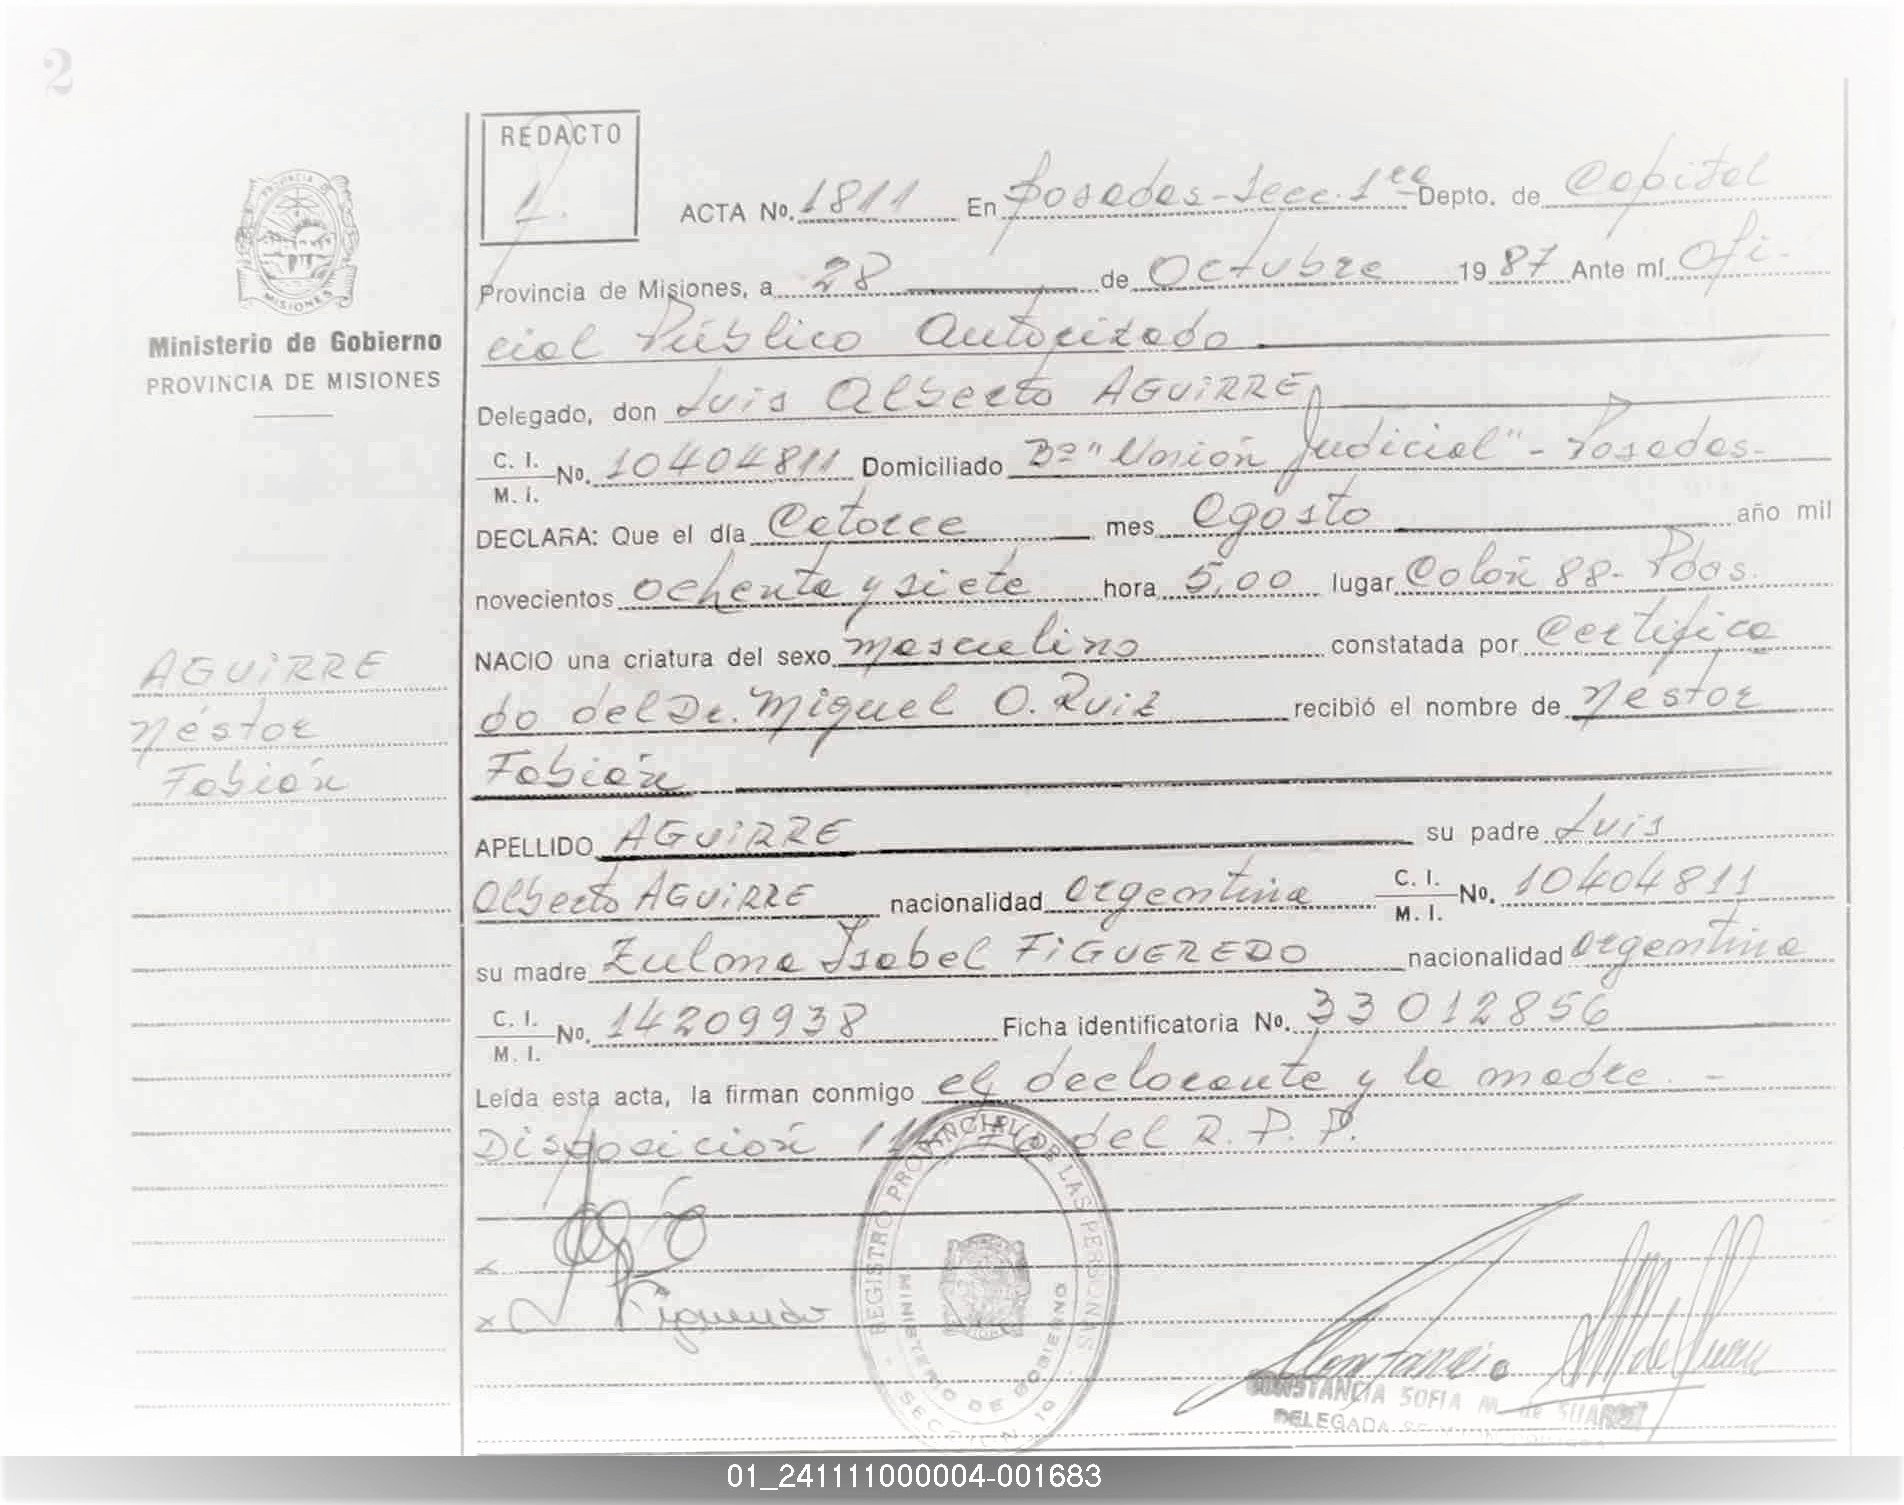 2
REDACTO
1.
ACTA No. 1811 En Posadas-Secc. 1ra Depto. de Capital
PROVINCIA DE
MISIONES
Provincia de Misiones, a 28 de Octubre 1987 Ante mí Ofi-
Ministerio de Gobierno
cial Público Autorizado
PROVINCIA DE MISIONES
Delegado, don Luis Alberto AGUIRRE
C. I.
M. I. No. 10404811 Domiciliado Bº "Unión Judicial" - Posadas-
DECLARA: Que el día Catorce mes Agosto año mil
novecientos ochenta y siete hora 5,00 lugar Colón 88- Pdas.
NACIO una criatura del sexo masculino constatada por Certifica
AGUIRRE
do del Dr. Miguel O. Ruiz recibió el nombre de Néstor
Néstor
Fabián
Fabián
APELLIDO AGUIRRE su padre Luis
Alberto AGUIRRE nacionalidad argentina C. I.
M. I. No. 10404811
su madre Zulma Isabel FIGUEREDO nacionalidad argentina
C. I.
M. I. No. 14209938 Ficha identificatoria No. 33012856
Leída esta acta, la firman conmigo el declarante y la madre. -
Disposición del R. P. P.
REGISTRO PROVINCIAL DE LAS PERSONAS
MINISTERIO DE GOBIERNO
SECCION 1a
x
x Figueredo
CONSTANCIA SOFIA M. de SUAREZ
DELEGADA
01_241111000004-001683